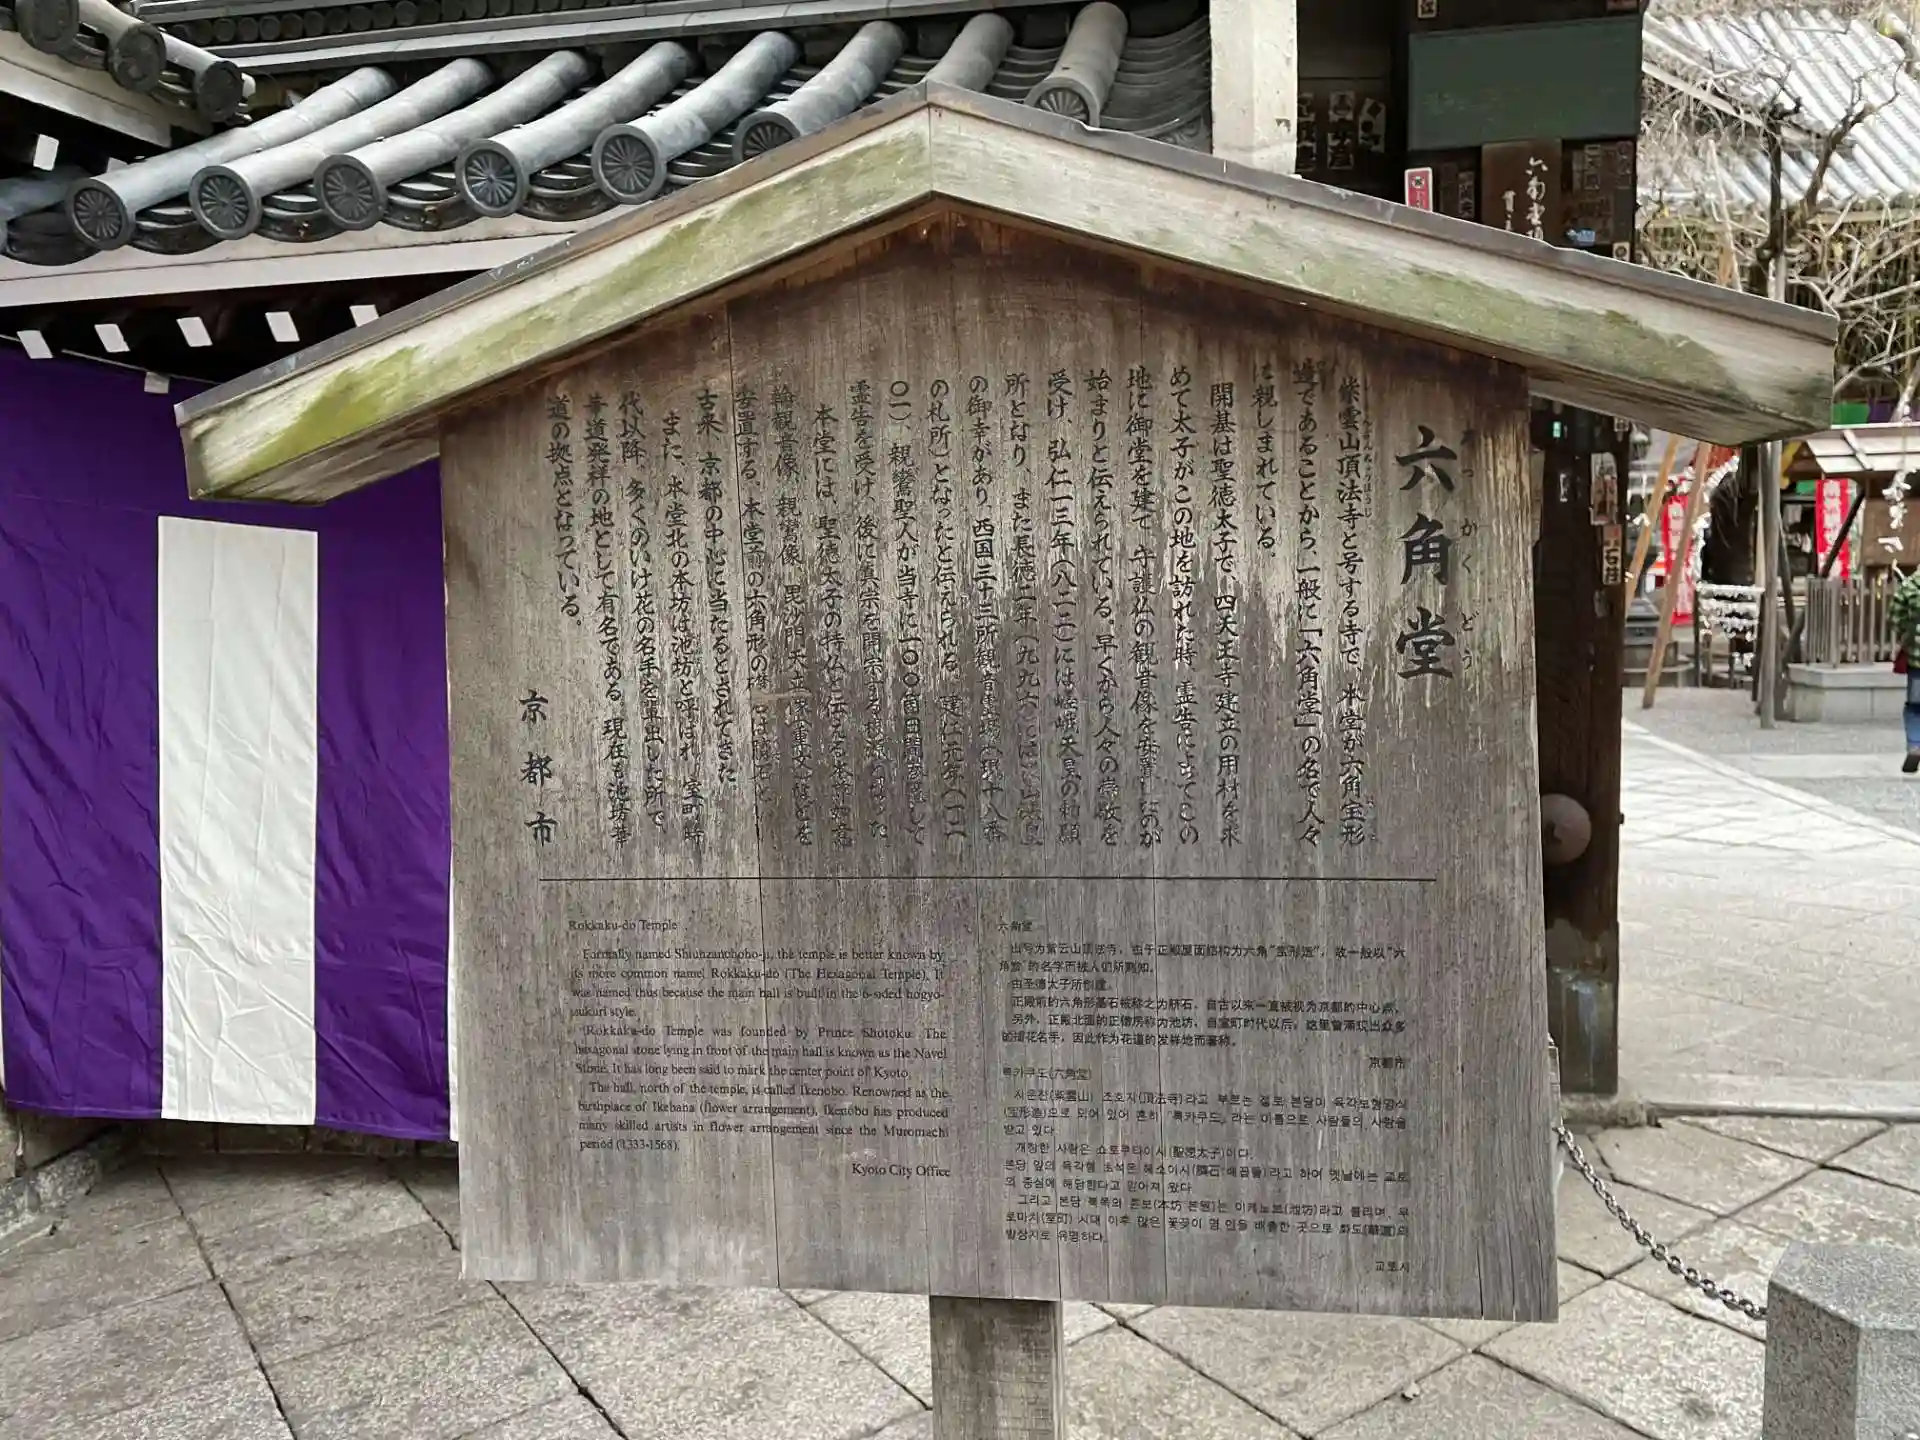 六角堂
ろっかくどう
紫雲山頂法寺と号する寺で、本堂が六角宝形
造であることから、一般に「六角堂」の名で人々
に親しまれている。
開基は聖徳太子で、四天王寺建立の用材を求
めて太子がこの地を訪れた時、霊告によってこの
地に御堂を建て、守護仏の観音像を安置したのが
始まりと伝えられている。早くから人々の崇敬を
受け、弘仁一三年(八二二)には嵯峨天皇の勅願
所となり、また長徳二年(九九六)には花山法皇
の御幸があり、西国三十三所観音霊場(現十八番
の札所)となったと伝えられる。建仁元年(一二
〇一)、親鸞聖人が当寺に一〇〇箇日間参籠して
霊告を受け、後に真宗を開宗する根源となった。
本堂には、聖徳太子の持仏と伝える本尊如意
輪観音像、親鸞像、毘沙門天立像(重文)などを
安置する。本堂前の六角形の礎石は臍石といい、
古来、京都の中心に当たるとされてきた。
また、本堂北の本坊は池坊と呼ばれ、室町時
代以降、多くのいけ花の名手を輩出した所で、
華道発祥の地として有名である。現在も池坊華
道の拠点となっている。
京都市
Rokkaku-do Temple
Formally named Shiunzanchoho-ji, the temple is better known by
its more common name, Rokkaku-do (The Hexagonal Temple). It
was named thus because the main hall is built in the 6-sided hogyo-
zukuri style.
Rokkaku-do Temple was founded by Prince Shotoku. The
hexagonal stone lying in front of the main hall is known as the Navel
Stone. It has long been said to mark the center point of Kyoto.
The hall, north of the temple, is called Ikenobo. Renowned as the
birthplace of Ikebana (flower arrangement), Ikenobo has produced
many skilled artists in flower arrangement since the Muromachi
period (1333-1568).
Kyoto City Office
六角堂
山号为紫云山顶法寺，由于正殿屋面结构为六角“宝形造”，故一般以“六
角堂”的名字而被人们所熟知。
由圣德太子所创建。
正殿前的六角形基石被称之为脐石，自古以来一直被视为京都的中心点。
另外，正殿北面的正僧房称为池坊，自室町时代以后，这里曾涌现出众多
的插花名手，因此作为花道的发祥地而著称。
京都市
록카쿠도(六角堂)
시운잔(紫雲山) 쵸호지(頂法寺)라고 부르는 절로 본당이 육각보형양식
(宝形造)으로 되어 있어 흔히 「록카쿠도」라는 이름으로 사람들의 사랑을
받고 있다.
개창한 사람은 쇼토쿠타이시(聖徳太子)이다.
본당 앞의 육각형 초석은 헤소이시(臍石:배꼽돌)라고 하여 옛날에는 교토
의 중심에 해당한다고 믿어져 왔다.
그리고 본당 북쪽의 혼보(本坊:본원)는 이케노보(池坊)라고 불리며, 무
로마치(室町) 시대 이후 많은 꽃꽂이 명인을 배출한 곳으로 화도(華道)의
발상지로 유명하다.
교토시